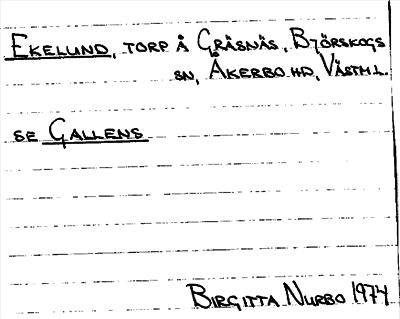 EKELUND, TORP Å GRÄSNÄS, BJÖRSKOGS
SN, ÅKERBO HD, VÄSTML.
SE GALLENS
BIRGITTA NURBO 1974